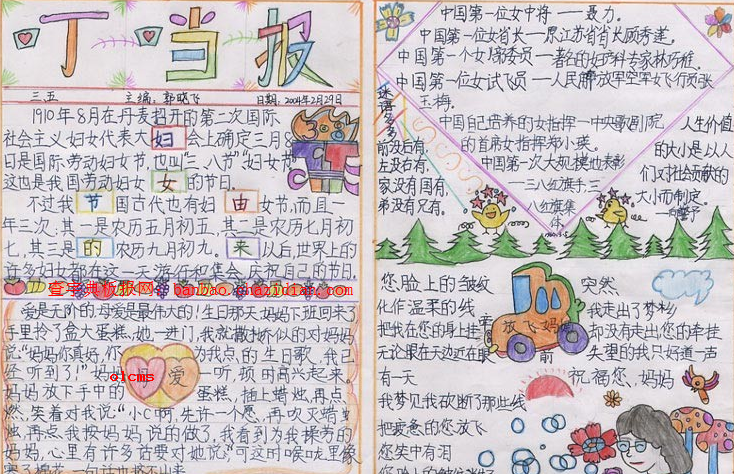 叮当报
三、五 主编:郭晓飞 日期:2004年2月29日
1910年8月在丹麦召开的第二次国际
社会主义妇女代表大会上确定三月
日是国际劳动妇女节,也叫"三八节"妇女节
这也是我国劳动妇女的节日。
妇女节的由来
不过我国古代也有妇女节,而且一
年三次:其一是农历五月初五,其二是农历七月初
七,其三是农历九月初九。以后,世界上的
许多妇女都在这一天游行和集会,庆祝自己的节日.
查字典板报网:banbao.chazidian.com
爱是无价的,母爱是最伟大的!生日那天,妈妈下班回来了
手里拎了盒大蛋糕,她一进门,我就撒娇似的对妈妈
说:"妈妈你真好,你为我点的生日歌,我已
经听到了!"妈妈一听,顿时高兴起来。
dlcms
爱
妈妈放下手中的蛋糕,插上蜡烛,再点
燃,笑着对我说:"小C啊,先许一个愿,再吹灭蜡
烛,再点我按妈妈说的做了,我看到为我操劳的
妈妈,心里有许多话要对她说!"可这时喉咙里像
一句话也说不出来
中国第一位女中将——聂力。
中国第一位女省长——原江苏省省长顾秀莲。
中国第一个女 委员——著名的妇产科专家林巧稚。
中国第一位女试飞员——人民解放军空军女飞行员张
玉梅。
中国自己培养的女指挥——中央歌剧院
的首席女指挥郑小瑛。
中国第一次大规模地表彰
——三八红旗手,三
八红旗集
体。
谜语多多
前没右有,
左没右有,
家没有国有,
弟没有兄有。
人生价值
的大小是以人
们对社会贡献的
大小而制定。
——向警予
您脸上的皱纹
化作温柔的线
把我在您的身上挂牵
无论跟在天边近在眼前
有一天
我梦见我砍断了那些线
把疲惫的您放飞
您笑中有泪
您脸上的皱纹
放飞妈妈
突然
我走出了梦乡
却没有走出您的牵挂
失望的我只好道一声
祝福您,妈妈